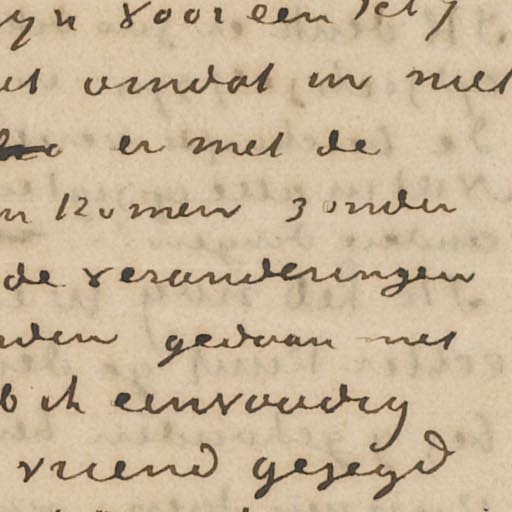 zijn voor een
omdat m niet
er met de
n komen zonder
de veranderingen
gedaan met
b ik eenvoudig
vriend gezegd